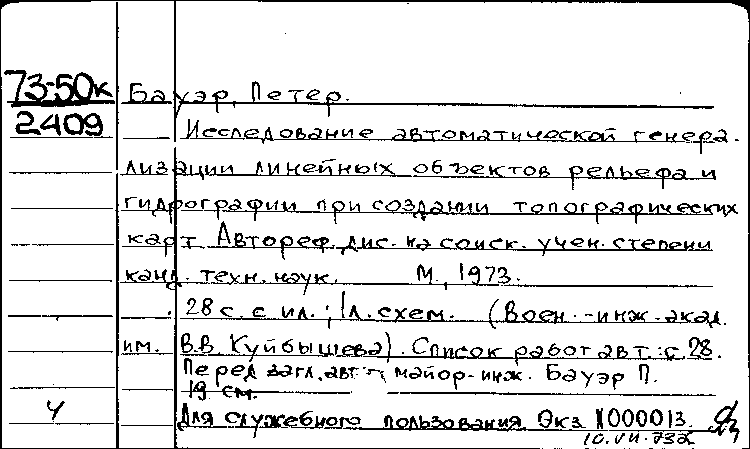 73-50к
2409
Бауэр, Петер.
Исследование автоматической генера-
лизации линейных объектов рельефа и
гидрографии при создании топографических
карт Автореф. дис. на соиск. учен. степени
канд. техн. наук. М., 1973.
28 с. с ил.; 1 л. схем. (Воен.-инж. акад.
им. В.В. Куйбышева). Список работ авт.: с. 28.
Перед загл. авт.: майор-инж. Бауэр П.
19 см.
Для служебного пользования. Экз. №000013.
10.VII.73г.